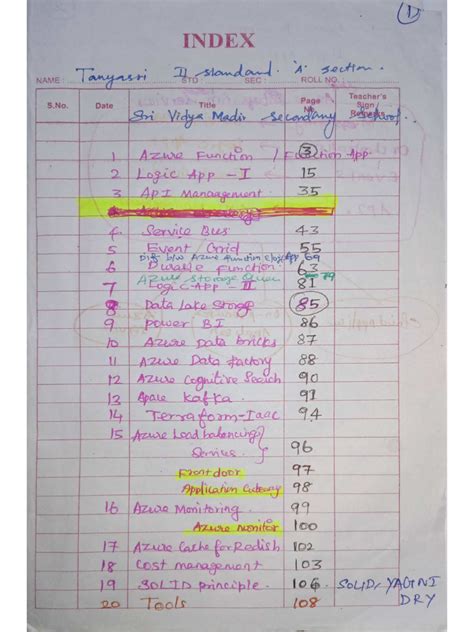 1
INDEX
NAME: Tanyasri STD.: II standard SEC.: 'A' section. ROLL NO.:
S.No. Date Title Page No. Teacher's Sign / Remarks
Sri Vidya Madir secondary school.
1 Azure Function / Function App 3
2 Logic App - I 15
3 API Manaagement 35
4 Service Bus 43
5 Event Grid 55
Diff b/w Azure Function & logic App 69
6 Durable Function 63
Azure Storage Queu 79
7 Logic-APP - II 81
8 Data Lake Storage 85
9 Power BI 86
10 Azure Data bricks 87
11 Azure Data factory 88
12 Azure Cognitive Search 90
13 Apace Kafka 91
14 Terraform-Iaac 94
15 Azure Load balancing
Servius 96
Front door 97
Application Gateway 98
16 Azure Monitoring 99
Azure monitor 100
17 Azure Cache for Redish 102
18 Cost management 103
19 SOLID principle 106 SOLID, YAGNI
20 Tools 108 DRY